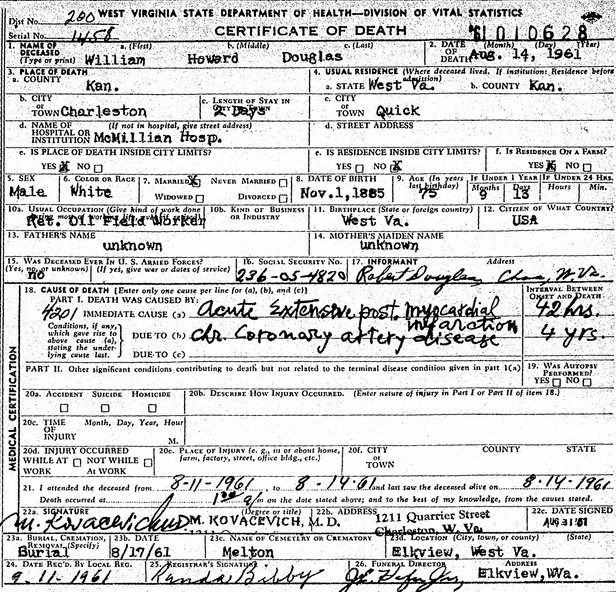 Dist No. 200 WEST VIRGINIA STATE DEPARTMENT OF HEALTH—DIVISION OF VITAL STATISTICS
Serial No. 1458 CERTIFICATE OF DEATH 61 010628
1. NAME OF DECEASED (Type or print) a. (First) b. (Middle) c. (Last) 2. DATE OF DEATH (Month) (Day) (Year)
William Howard Douglas Aug. 14, 1961
3. PLACE OF DEATH 4. USUAL RESIDENCE (Where deceased lived. If institution: Residence before admission)
a. COUNTY Kan. a. STATE West Va. b. COUNTY Kan.
b. CITY OR TOWN Charleston c. LENGTH OF STAY IN 2 Days c. CITY OR TOWN Quick
d. NAME OF HOSPITAL OR INSTITUTION (If not in hospital, give street address) McMillian Hosp. d. STREET ADDRESS
e. IS PLACE OF DEATH INSIDE CITY LIMITS? e. IS RESIDENCE INSIDE CITY LIMITS? f. IS RESIDENCE ON A FARM?
YES X NO YES NO X YES X NO
5. SEX 6. COLOR OR RACE 7. MARRIED X NEVER MARRIED 8. DATE OF BIRTH 9. AGE (In years last birthday) IF UNDER 1 YEAR IF UNDER 24 HRS.
Male White WIDOWED DIVORCED Nov.1,1885 75 Months 9 Days 13 Hours Min.
10a. USUAL OCCUPATION (Give kind of work done 10b. KIND OF BUSINESS OR INDUSTRY 11. BIRTHPLACE (State or foreign country) 12. CITIZEN OF WHAT COUNTRY?
Ret. Oil Field Worker West Va. USA
13. FATHER'S NAME 14. MOTHER'S MAIDEN NAME
unknown unknown
15. WAS DECEASED EVER IN U. S. ARMED FORCES? 16. SOCIAL SECURITY No. 17. INFORMANT Address
(Yes, no, or unknown) (If yes, give war or dates of service)
no 236-05-4820 Robert Douglas, Chas, W. Va.
18. CAUSE OF DEATH [Enter only one cause per line for (a), (b), and (c)] INTERVAL BETWEEN ONSET AND DEATH
PART I. DEATH WAS CAUSED BY:
4201 IMMEDIATE CAUSE (a) Acute Extensive post. myocardial infarction 42 hrs.
Conditions, if any, which gave rise to above cause (a), stating the underlying cause last. DUE TO (b) chr. Coronary artery disease 4 yrs.
DUE TO (c)
PART II. Other significant conditions contributing to death but not related to the terminal disease condition given in part 1(a) 19. WAS AUTOPSY PERFORMED?
YES NO
MEDICAL CERTIFICATION
20a. ACCIDENT SUICIDE HOMICIDE 20b. DESCRIBE HOW INJURY OCCURRED. (Enter nature of injury in Part I or Part II of item 18.)
20c. TIME OF INJURY Month, Day, Year, Hour M.
20d. INJURY OCCURRED 20e. PLACE OF INJURY (e. g., in or about home, farm, factory, street, office bldg., etc.) 20f. CITY OR TOWN COUNTY STATE
WHILE AT WORK NOT WHILE AT WORK
21. I attended the deceased from 8-11-1961, to 8-14-61 and last saw the deceased alive on 8-14-1961
Death occurred at m on the date stated above; and to the best of my knowledge, from the causes stated.
22a. SIGNATURE (Degree or title) 22b. ADDRESS 22c. DATE SIGNED
M. Kovacevich M. KOVACEVICH, M. D. 1211 Quarrier Street AUG 31 61
Charleston, W. Va.
23a. BURIAL, CREMATION, REMOVAL (Specify) 23b. DATE 23c. NAME OF CEMETERY OR CREMATORY 23d. LOCATION (City, town, or county) (State)
Burial 8/17/61 Melton Elkview, West Va.
24. DATE REC'D. BY LOCAL REG. 25. REGISTRAR'S SIGNATURE 26. FUNERAL DIRECTOR ADDRESS
9-11-1961 Randa Bibby Elkview, WVa.